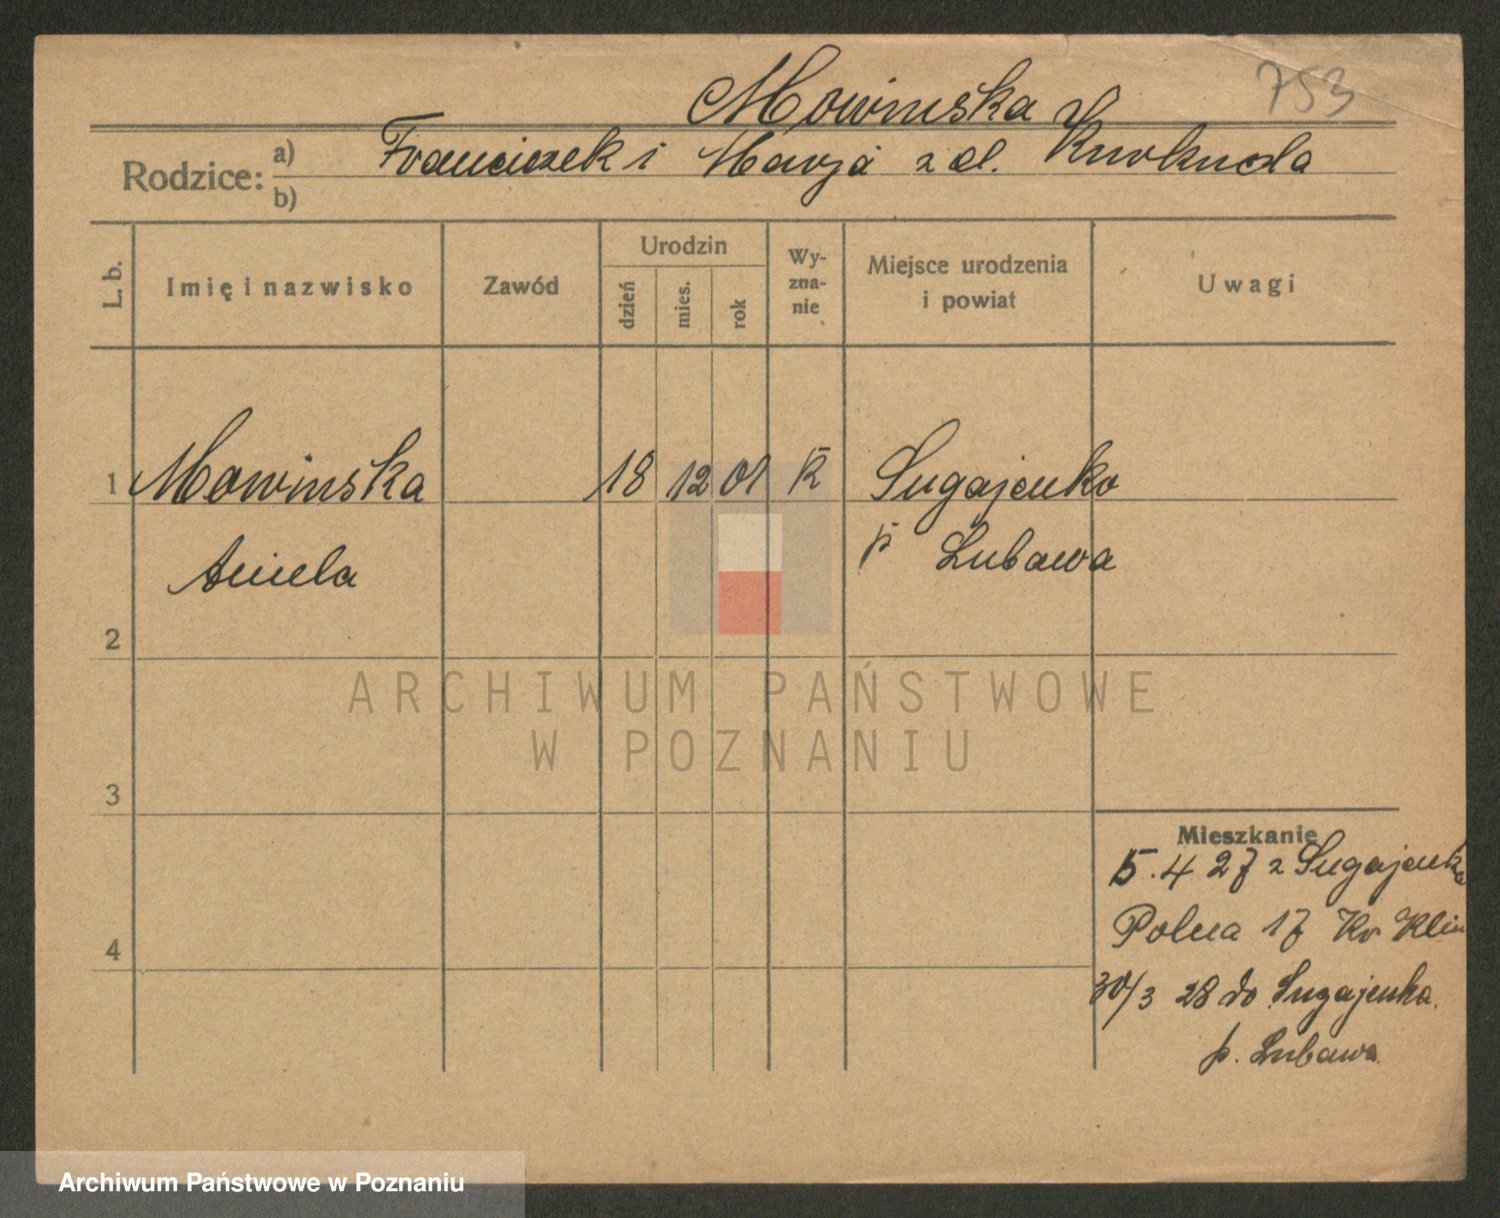 753
Mowinska
Rodzice: a) Franciszek i Marja z d.
b)
L. b. Imię i nazwisko Zawód Urodzin dzień mies. rok Wyznanie Miejsce urodzenia i powiat Uwagi
1 Mowinska 18 12 01 K Sugajenko
Aniela p Lubawa
2
ARCHIWUM PAŃSTWOWE
W POZNANIU
3
Mieszkanie
5.4 27 z Sugajenka
Polna 17
4
30/3 28 do Sugajenka.
p. Lubawa.
Archiwum Państwowe w Poznaniu